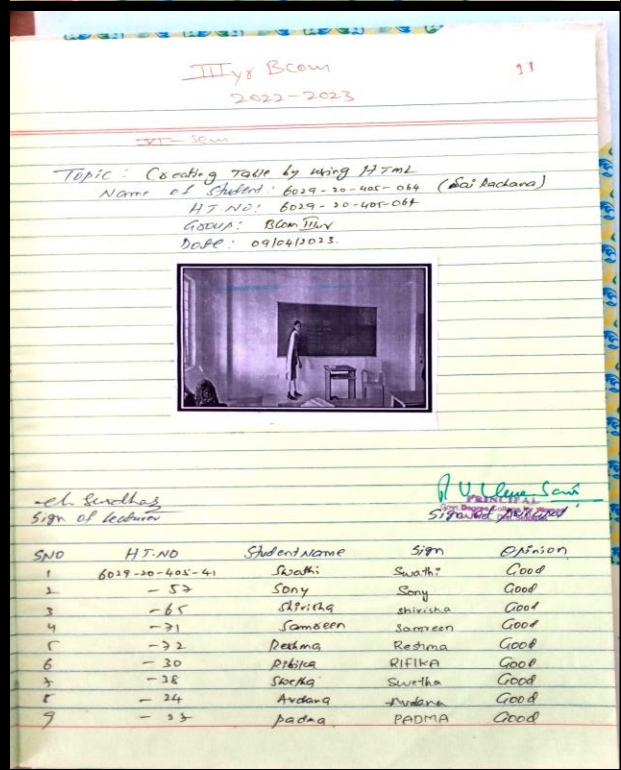 IIIyr BCom
91
2022-2023
VI - Sem
Topic : Creating Table by using HTML
Name of Student : 6029-20-405-064 (Sai Rachana)
H.T.NO: 6029-20-405-064
Group: BCom IIIyr
Date : 09/04/2023.
Sign of lecturer
PRINCIPAL
SNO HT.NO Student Name Sign Opinion
1 6029-20-405-41 Swathi Swathi Good
2 - 57 Sony Sony Good
3 - 65 Shirisha shirisha Good
4 - 71 Samreen Samreen Good
5 - 72 Reshma Reshma Good
6 - 30 RIFIKA Good
7 - 38 Swetha Swetha Good
8 - 24 Good
9 padma PADMA Good